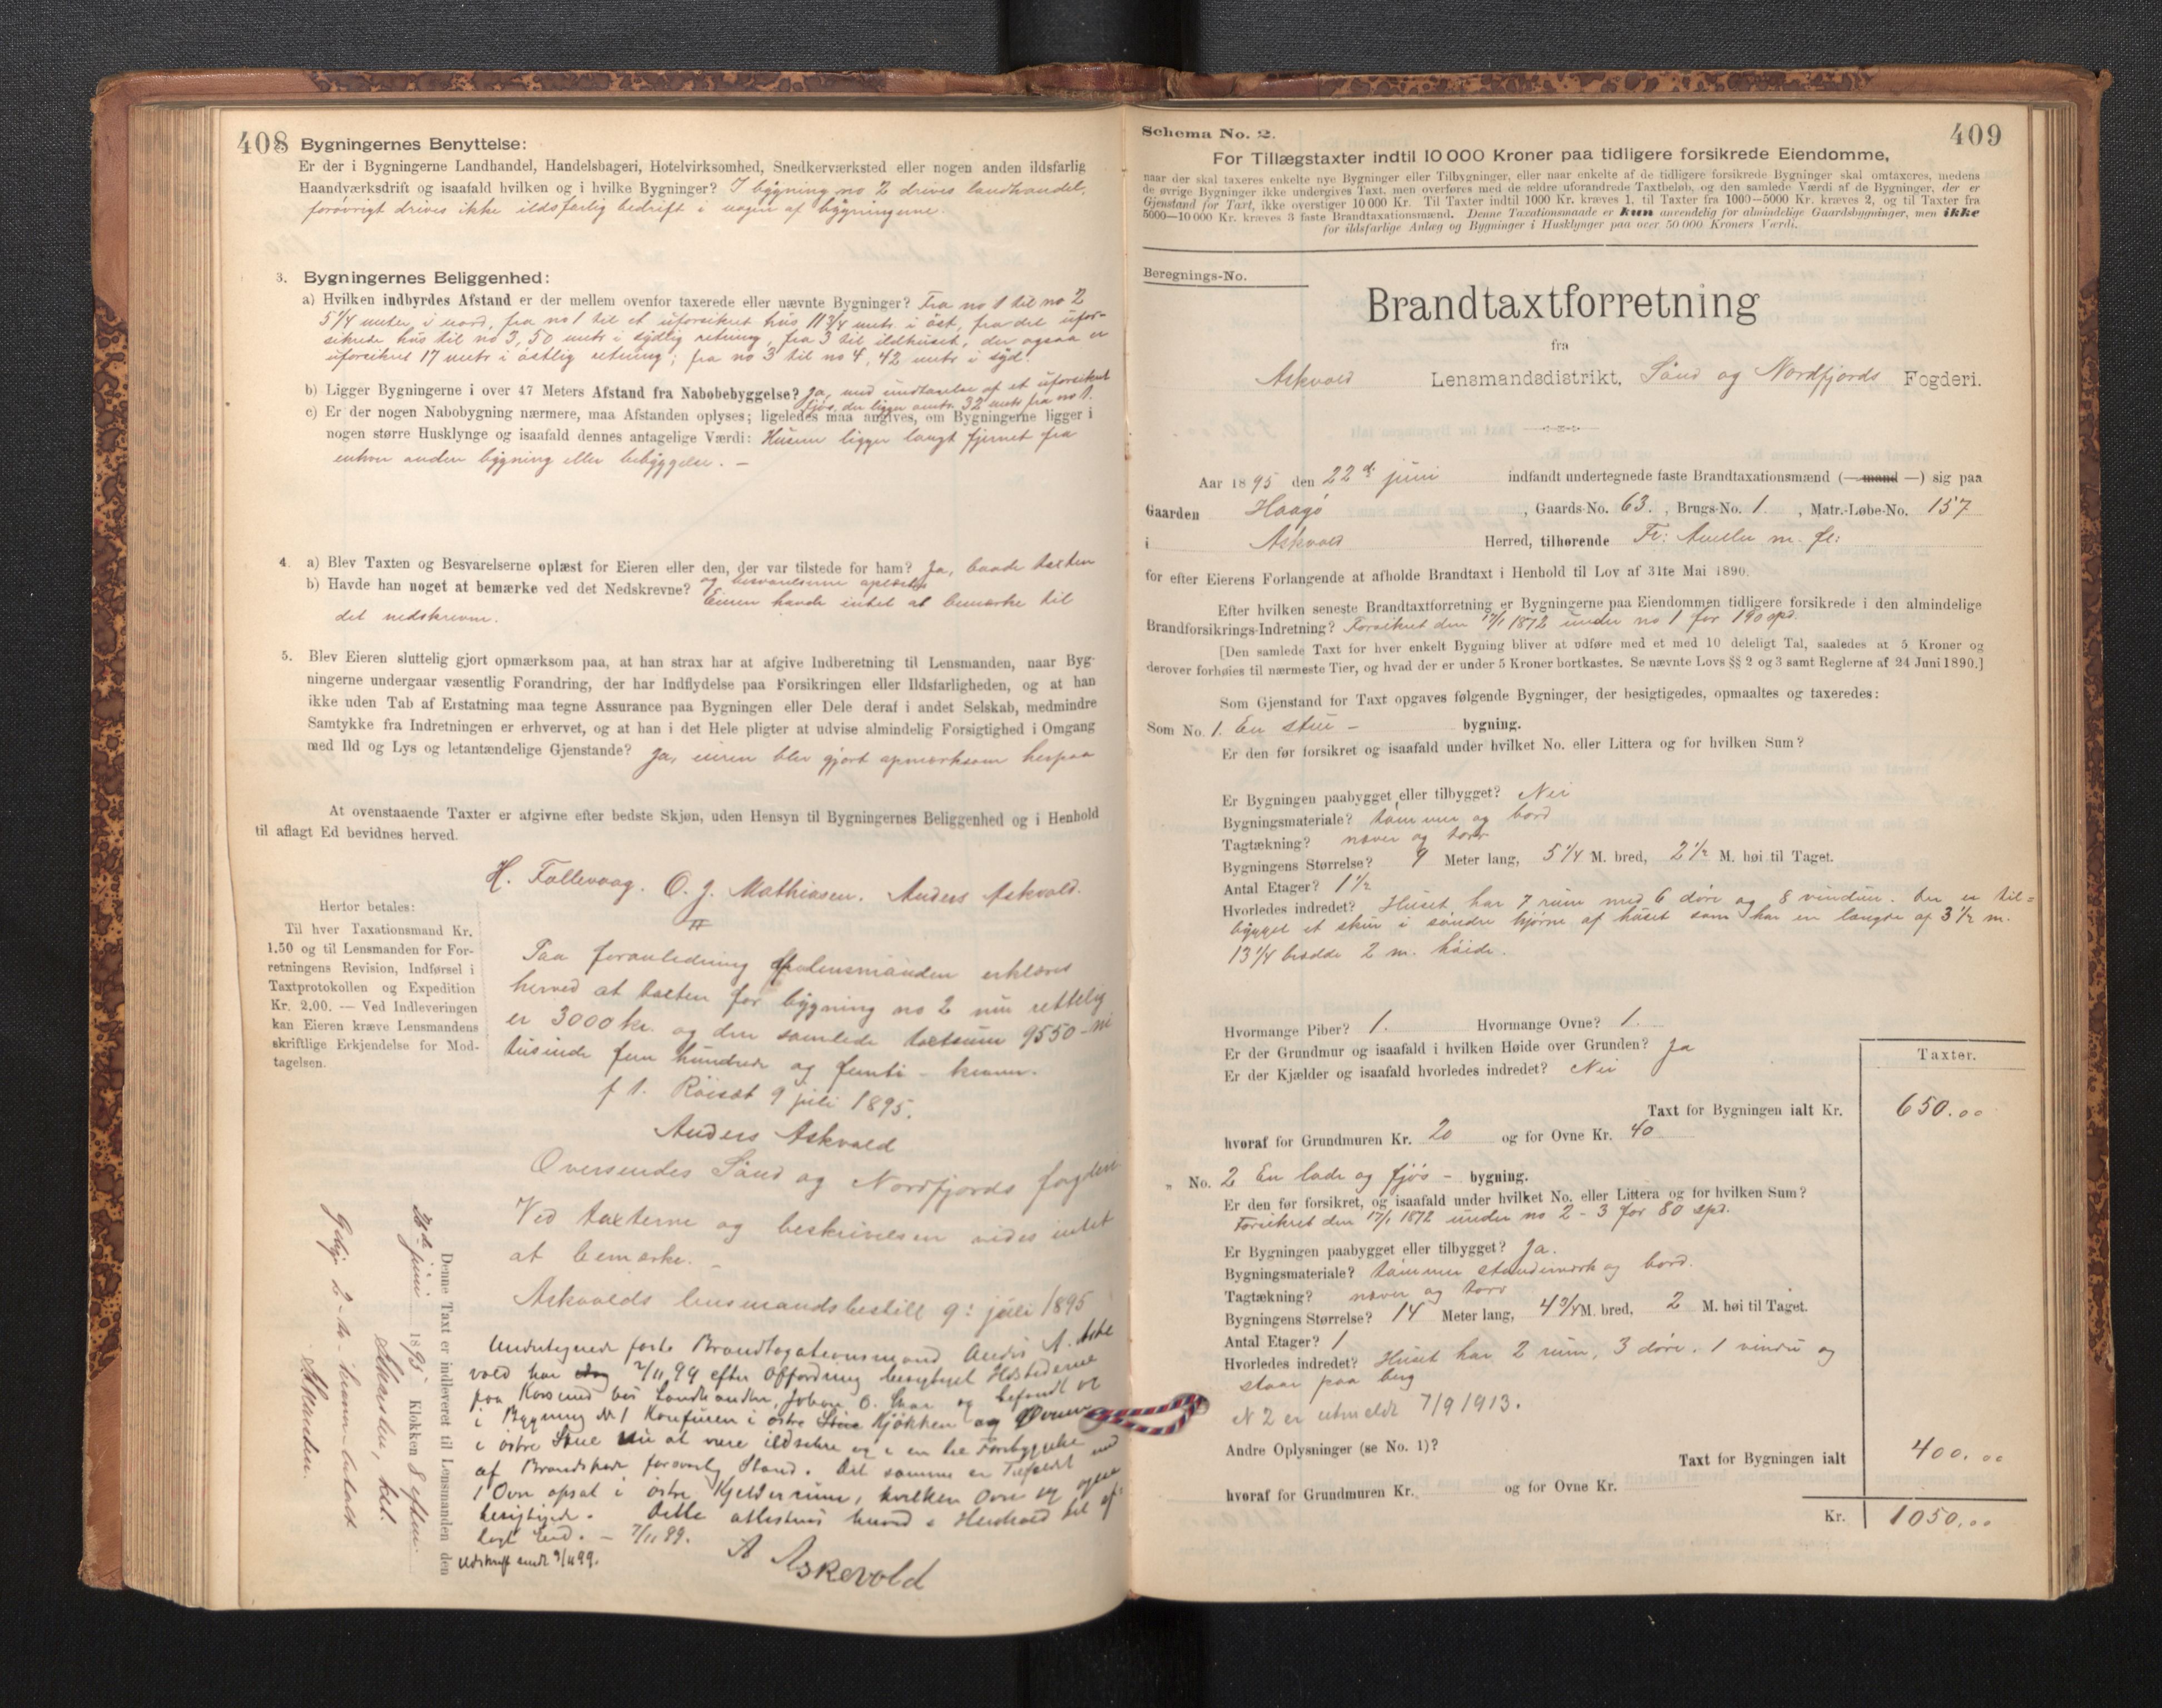 408 Bygningernes Benyttelse:
Er der i Bygningerne Landhandel, Handelsbageri, Hotelvirksomhed, Snedkerværksted eller nogen anden ildsfarlig
Haandværksdrift og isaafald hvilken og i hvilke Bygninger? I bygning no 2 drives landhandel,
forøvrigt drives ikke ildsfarlig bedrift i nogen af bygningerne.
3. Bygningernes Beliggenhed:
a) Hvilken indbyrdes Afstand er der mellem ovenfor taxerede eller nævnte Bygninger? Fra no 1 til no 2
5 1/4 meter i nord, fra no 1 til et uforsikret hus 11 3/4 metr. i øst, fra det ufor-
sikrede hus til no 3, 50 metr i sydlig retning, fra 3 til ildhuset, der ogsaa er
uforsikret 17 metr i østlig retning; fra no 3 til no 4, 42 metr i syd.
b) Ligger Bygningerne i over 47 Meters Afstand fra Nabobebyggelse? Ja, med undtagelse af et uforsikret
fjøs, der ligger omtr. 32 metr fra no 1.
c) Er der nogen Nabobygning nærmere, maa Afstanden oplyses; ligeledes maa angives, om Bygningerne ligger i
nogen større Husklynge og isaafald dennes antagelige Værdi: Husene ligger langt fjernet fra
enhver anden bygning eller bebyggelse. —
4. a) Blev Taxten og Besvarelserne oplæst for Eieren eller den, der var tilstede for ham? Ja, baade taxten
og besvarelserne oplæstes
b) Havde han noget at bemærke ved det Nedskrevne? Eieren havde intet at bemærke til
det nedskrevne.
5. Blev Eieren sluttelig gjort opmærksom paa, at han strax har at afgive Indberetning til Lensmanden, naar Byg-
ningerne undergaar væsentlig Forandring, der har Indflydelse paa Forsikringen eller Ildsfarligheden, og at han
ikke uden Tab af Erstatning maa tegne Assurance paa Bygningen eller Dele deraf i andet Selskab, medmindre
Samtykke fra Indretningen er erhvervet, og at han i det Hele pligter at udvise almindelig Forsigtighed i Omgang
med Ild og Lys og letantændelige Gjenstande? Ja, eieren blev gjort opmærksom herpaa
At ovenstaaende Taxter er afgivne efter bedste Skjøn, uden Hensyn til Bygningernes Beliggenhed og i Henhold
til aflagt Ed bevidnes herved.
H. Follevaag. O. J. Mathiasen. Anders Askvold.
Herfor betales:
Til hver Taxationsmand Kr.
1.50 og til Lensmanden for For-
retningens Revision, Indførsel i
Taxtprotokollen og Expedition
Kr. 2.00. — Ved Indleveringen
kan Eieren kræve Lensmandens
skriftlige Erkjendelse for Mod-
tagelsen.
Paa foranledning af lensmanden erklæres
herved at taxten for bygning no 2 nu rettelig
er 3000 kr. og den samlede taxtsum 9550 – ni
tusinde fem hundrede og femti – kroner.
f. t. Røiset 9 juli 1895.
Anders Askvold
Oversendes Sønd og Nordfjords fogderi
Ved taxterne og beskrivelsen vides intet
at bemærke. –
Askvolds lensmandsbestill 9: juli 1895
Undertegnede faste Brandtaxationsmand Anders A. Aske
vold har 7/11 99 efter Opfordring besigtiget Ildstederne
paa Korssund hos Landhandler Johan O. og befundet
i Bygning N 1 Komfuren i østre Kjøkken og Ovnen
i østre Stue at være ildsikre og i en til Forebyggelse
af Brandskade forsvarlig Stand. Det samme er Tilfældet med
1 Ovn opsat i østre Kjelderrum, hvilken Ovn og ogsaa
besigtigede. Dette attesteres herved i Henhold til af-
lagt Ed. – 7/11 99.
A Askevold
Udskrift sendt 9/11 99.
Denne Taxt er indleveret til Lensmanden den
26de juni 1895 Klokken 8 eftm.
Askvold, hst.
Gebyr 2 – to – kroner betalt
409
Schema No. 2.
For Tillægstaxter indtil 10 000 Kroner paa tidligere forsikrede Eiendomme,
naar der skal taxeres enkelte nye Bygninger eller Tilbygninger, eller naar enkelte af de tidligere forsikrede Bygninger skal omtaxeres, medens
de øvrige Bygninger ikke undergives Taxt, men overføres med de ældre uforandrede Taxtbeløb, og den samlede Værdi af de Bygninger, der er
Gjenstand for Taxt, ikke overstiger 10 000 Kr. Til Taxter indtil 1000 Kr. kræves 1, til Taxter fra 1000—5000 Kr. kræves 2, og til Taxter fra
5000—10 000 Kr. kræves 3 faste Brandtaxationsmænd. Denne Taxationsmaade er kun anvendelig for almindelige Gaardsbygninger, men ikke
for ildsfarlige Anlæg og Bygninger i Husklynger paa over 50 000 Kroners Værdi.
Beregnings-No.
Brandtaxtforretning
fra
Askvold Lensmandsdistrikt, Sønd og Nordfjords Fogderi.
Aar 1895 den 22de juni indfandt undertegnede faste Brandtaxationsmænd (— mand —) sig paa
Gaarden Haagø, Gaards-No. 63., Brugs-No. 1., Matr.-Løbe-No. 157
i Askvold Herred, tilhørende Fr: m. fl:
for efter Eierens Forlangende at afholde Brandtaxt i Henhold til Lov af 31te Mai 1890.
Efter hvilken seneste Brandtaxtforretning er Bygningerne paa Eiendommen tidligere forsikrede i den almindelige
Brandforsikrings-Indretning? Forsikret den 17/1 1872 under no 1 for 190 spd.
[Den samlede Taxt for hver enkelt Bygning bliver at udføre med et med 10 deleligt Tal, saaledes at 5 Kroner og
derover forhøies til nærmeste Tier, og hvad der er under 5 Kroner bortkastes. Se nævnte Lovs §§ 2 og 3 samt Reglerne af 24 Juni 1890.]
Som Gjenstand for Taxt opgaves følgende Bygninger, der besigtigedes, opmaaltes og taxeredes:
Som No. 1. En stue – bygning.
Er den før forsikret og isaafald under hvilket No. eller Littera og for hvilken Sum?
Er Bygningen paabygget eller tilbygget? Nei
Bygningsmateriale? tømmer og bord
Tagtækning? næver og torv
Bygningens Størrelse? 9 Meter lang, 5 1/4 M. bred, 2 1/2 M. høi til Taget.
Antal Etager? 1 1/2
Hvorledes indredet? Huset har 7 rum med 6 døre og 8 vinduer. Der er til-
bygget et skur i søndre hjørne af huset som har en længde af 3 1/2 m.
13/4 bredde 2 m. høide.
Hvormange Piber? 1. Hvormange Ovne? 1.
Er der Grundmur og isaafald i hvilken Høide over Grunden? Ja
Er der Kjælder og isaafald hvorledes indredet? Nei
Taxter.
Taxt for Bygningen ialt Kr. 650.00
hvoraf for Grundmuren Kr. 20 og for Ovne Kr. 40
„ No. 2 En lade og fjøs – bygning.
Er den før forsikret, og isaafald under hvilket No. eller Littera og for hvilken Sum?
Forsikret den 17/1 1872 under no 2 – 3 for 80 spd.
Er Bygningen paabygget eller tilbygget? Ja.
Bygningsmateriale? tømmer stenderværk og bord.
Tagtækning? næver og torv
Bygningens Størrelse? 14 Meter lang, 4 3/4 M. bred, 2 M. høi til Taget.
Antal Etager? 1
Hvorledes indredet? Huset har 2 rum, 3 døre. 1 vindu og
staar paa berg
N 2 er utmeldt 7/9 1913.
Andre Oplysninger (se No. 1)?
Taxt for Bygningen ialt 400.00
hvoraf for Grundmuren Kr. og for Ovne Kr.
Kr. 1050.00